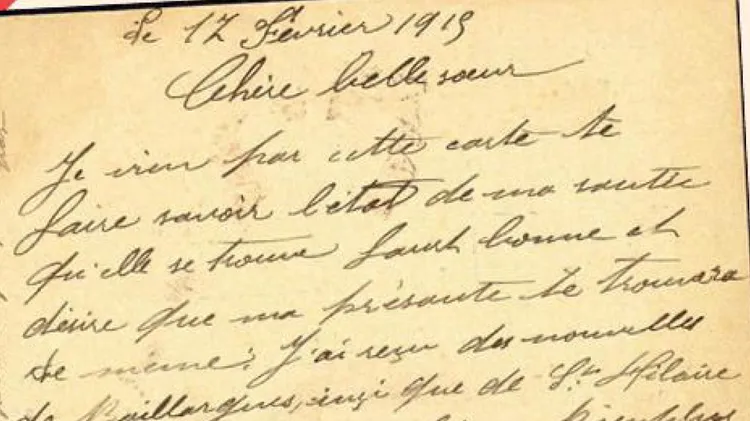 Le 17 Février 1915
Chère belle sœur
Je vien par cette carte te
faire savoir l'état de ma santée
qu'elle se trouve fort bonne et
désire que ma présante te trouvera
de meme. J'ai reçu des nouvelles
de Baillargues, inçi que de St Hilaire